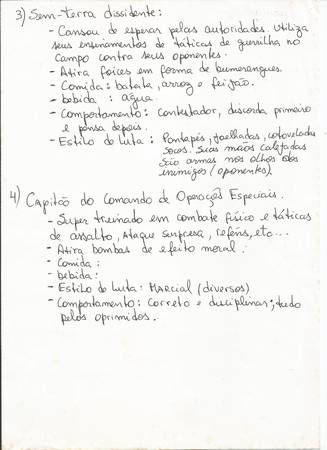 3) Sem-terra dissidente:
- Cansou de esperar pelas autoridades. Utiliza
seus ensinamentos de táticas de guerrilha no
campo contra seus oponentes.
- Atira foices em forma de bumerangues.
- Comida: batata, arroz e feijão.
- bebida: água.
- Comportamento: contestador, discorda primeiro
e pensa depois.
- Estilo de luta: Pontapés, joelhadas, cotoveladas
socos. Suas mãos calejadas
são armas nos olhos dos
inimigos (oponentes).
4) Capitão do Comando de Operações Especiais.
- Super treinado em combate físico e táticas
de assalto, Ataque surpresa, reféns, etc...
- Atira bombas de efeito moral.
- Comida:
- bebida:
- Estilo de luta: MArcial (diversos)
- Comportamento: Correto e disciplinar; tudo
pelos oprimidos.